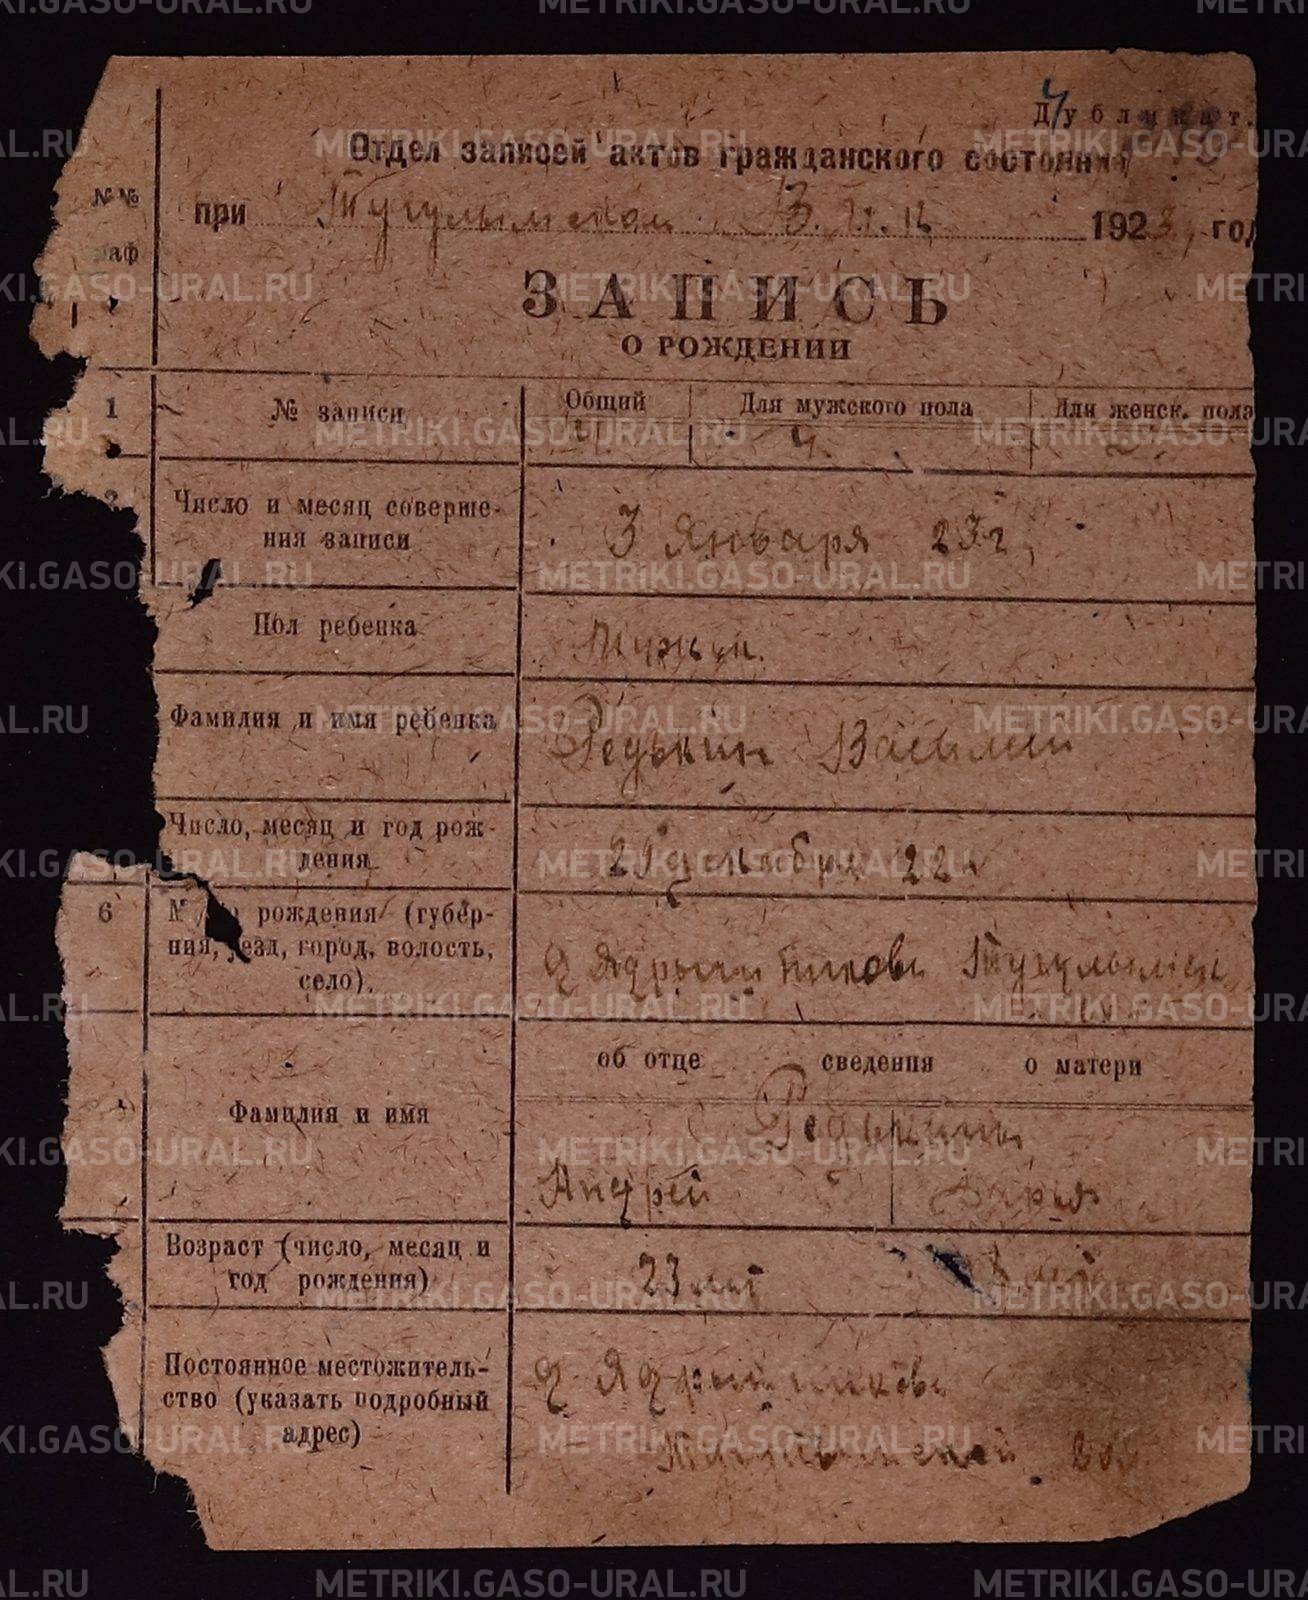 Дубликат.
Отдел записей актов гражданского состояния
при Тугулымском В.И.К 1923 год
№№
граф
ЗАПИСЬ
О РОЖДЕНИИ
1 № записи Общий Для мужского пола Для женск. пола
4 4
2 Число и месяц соверше-
ния записи
3 Января 23 г,
Пол ребенка
Мужск.
Фамилия и имя ребенка
Редькин Василий
Число, месяц и год рож-
дения
29 декабря 22 г
6 М рождения (губер-
ния, уезд, город, волость,
село).
д Ядрышникова Тугулымск
об отце сведения о матери
Фамилия и имя
Редькины
Андрей Дарья
Возраст (число, месяц и
год рождения)
23 лет лет
Постоянное местожитель-
ство (указать подробный
адрес)
д Ядрышникова
Тугулымской вол
METRIKI.GASO-URAL.RU